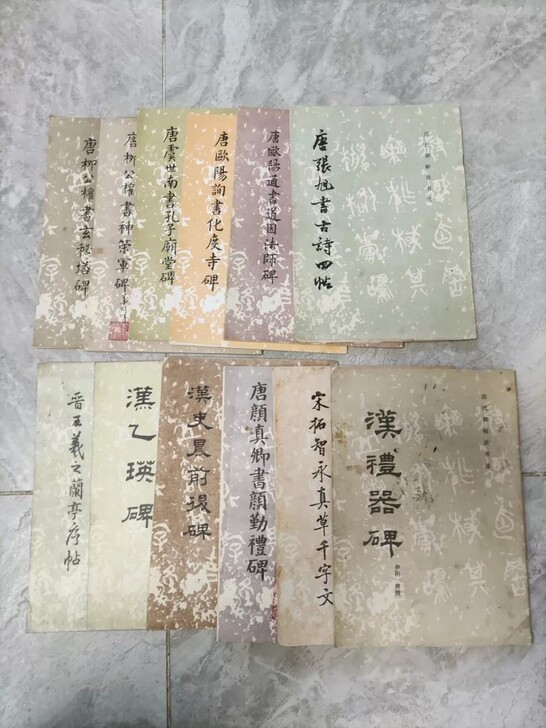 唐柳公權書玄秘塔碑
唐柳公權書神策軍碑
唐虞世南書孔子廟堂碑
唐歐陽詢書化度寺碑
唐歐陽通書道因法師碑
唐張旭書古詩四帖
晋王羲之蘭亭序帖
漢乙瑛碑
漢史晨前後碑
唐顏真卿書顏勤禮碑
宋拓智永真草千字文
漢禮器碑